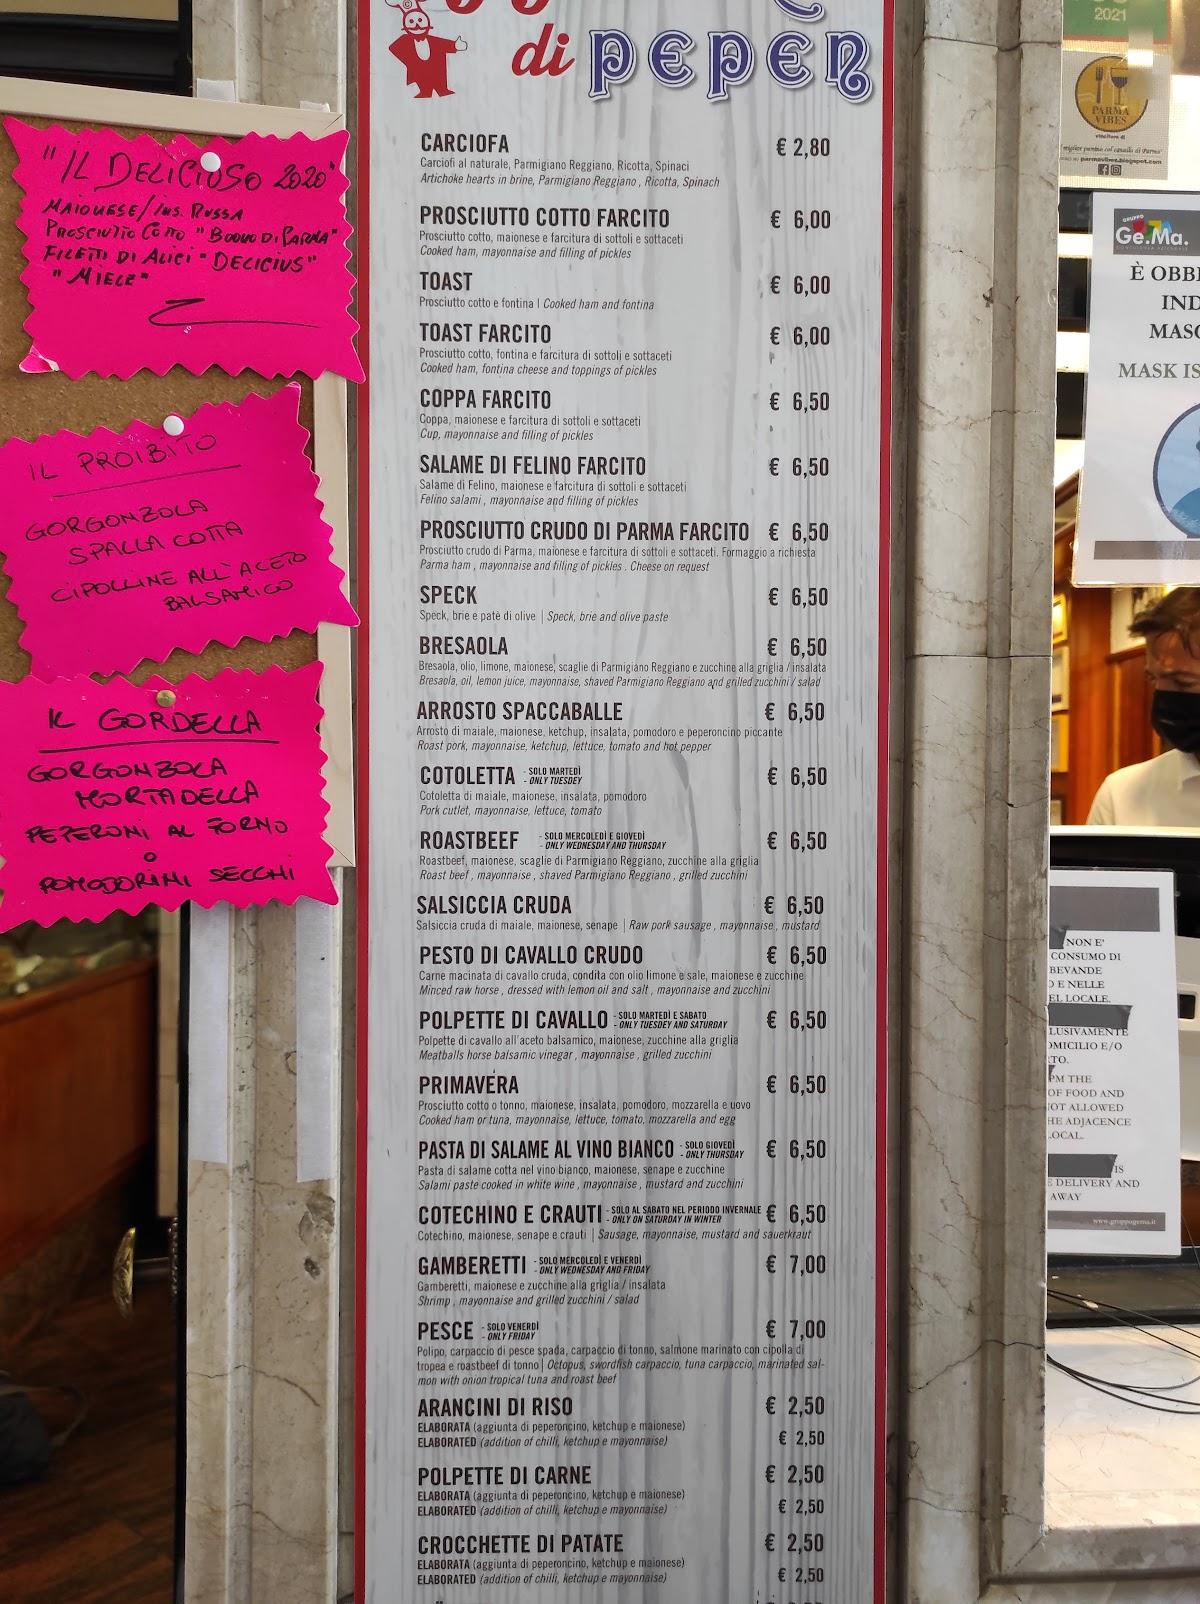 "IL DELICIOSO 2020"
MAIONESE/INS. RUSSA
PROSCIUTTO COTTO "BUONO DI PARMA"
FILETTI DI ALICI "DELICIUS"
"MIELE"
IL PROIBITO
GORGONZOLA
SPALLA COTTA
CIPOLLINE ALL'ACETO
BALSAMICO
IL GORDELLA
GORGONZOLA
MORTADELLA
PEPERONI AL FORNO
O
POMODORINI SECCHI
di PEPEN
CARCIOFA € 2,80
Carciofi al naturale, Parmigiano Reggiano, Ricotta, Spinaci
Artichoke hearts in brine, Parmigiano Reggiano , Ricotta, Spinach
PROSCIUTTO COTTO FARCITO € 6,00
Prosciutto cotto, maionese e farcitura di sottoli e sottaceti
Cooked ham, mayonnaise and filling of pickles
TOAST € 6,00
Prosciutto cotto e fontina | Cooked ham and fontina
TOAST FARCITO € 6,00
Prosciutto cotto, fontina e farcitura di sottoli e sottaceti
Cooked ham, fontina cheese and toppings of pickles
COPPA FARCITO € 6,50
Coppa, maionese e farcitura di sottoli e sottaceti
Cup, mayonnaise and filling of pickles
SALAME DI FELINO FARCITO € 6,50
Salame di Felino, maionese e farcitura di sottoli e sottaceti
Felino salami , mayonnaise and filling of pickles
PROSCIUTTO CRUDO DI PARMA FARCITO € 6,50
Prosciutto crudo di Parma, maionese e farcitura di sottoli e sottaceti. Formaggio a richiesta
Parma ham , mayonnaise and filling of pickles . Cheese on request
SPECK € 6,50
Speck, brie e patè di olive | Speck, brie and olive paste
BRESAOLA € 6,50
Bresaola, olio, limone, maionese, scaglie di Parmigiano Reggiano e zucchine alla griglia / insalata
Bresaola, oil, lemon juice, mayonnaise, shaved Parmigiano Reggiano and grilled zucchini / salad
ARROSTO SPACCABALLE € 6,50
Arrosto di maiale, maionese, ketchup, insalata, pomodoro e peperoncino piccante
Roast pork, mayonnaise, ketchup, lettuce, tomato and hot pepper
COTOLETTA - SOLO MARTEDÌ € 6,50
- ONLY TUESDEY
Cotoletta di maiale, maionese, insalata, pomodoro
Pork cutlet, mayonnaise, lettuce, tomato
ROASTBEEF - SOLO MERCOLEDÌ E GIOVEDÌ € 6,50
- ONLY WEDNESDAY AND THURSDAY
Roastbeef, maionese, scaglie di Parmigiano Reggiano, zucchine alla griglia
Roast beef , mayonnaise , shaved Parmigiano Reggiano , grilled zucchini
SALSICCIA CRUDA € 6,50
Salsiccia cruda di maiale, maionese, senape | Raw pork sausage , mayonnaise , mustard
PESTO DI CAVALLO CRUDO € 6,50
Carne macinata di cavallo cruda, condita con olio limone e sale, maionese e zucchine
Minced raw horse , dressed with lemon oil and salt , mayonnaise and zucchini
POLPETTE DI CAVALLO - SOLO MARTEDÌ E SABATO € 6,50
- ONLY TUESDEY AND SATURDAY
Polpette di cavallo all'aceto balsamico, maionese, zucchine alla griglia
Meatballs horse balsamic vinegar , mayonnaise , grilled zucchini
PRIMAVERA € 6,50
Prosciutto cotto o tonno, maionese, insalata, pomodoro, mozzarella e uovo
Cooked ham or tuna, mayonnaise, lettuce, tomato, mozzarella and egg
PASTA DI SALAME AL VINO BIANCO - SOLO GIOVEDÌ € 6,50
- ONLY THURSDAY
Pasta di salame cotta nel vino bianco, maionese, senape e zucchine
Salami paste cooked in white wine , mayonnaise , mustard and zucchini
COTECHINO E CRAUTI - SOLO AL SABATO NEL PERIODO INVERNALE € 6,50
- ONLY ON SATURDAY IN WINTER
Cotechino, maionese, senape e crauti | Sausage, mayonnaise, mustard and sauerkraut
GAMBERETTI - SOLO MERCOLEDÌ E VENERDÌ € 7,00
- ONLY WEDNESDAY AND FRIDAY
Gamberetti, maionese e zucchine alla griglia / insalata
Shrimp , mayonnaise and grilled zucchini / salad
PESCE - SOLO VENERDÌ € 7,00
- ONLY FRIDAY
Polipo, carpaccio di pesce spada, carpaccio di tonno, salmone marinato con cipolla di
tropea e roastbeef di tonno | Octopus, swordfish carpaccio, tuna carpaccio, marinated sal-
mon with onion tropical tuna and roast beef
ARANCINI DI RISO € 2,50
ELABORATA (aggiunta di peperoncino, ketchup e maionese)
ELABORATED (addition of chilli, ketchup e mayonnaise) € 2,50
POLPETTE DI CARNE € 2,50
ELABORATA (aggiunta di peperoncino, ketchup e maionese)
ELABORATED (addition of chilli, ketchup e mayonnaise) € 2,50
CROCCHETTE DI PATATE € 2,50
ELABORATA (aggiunta di peperoncino, ketchup e maionese)
ELABORATED (addition of chilli, ketchup e mayonnaise) € 2,50
2021
PARMA
VIBES
miglior panino col cavallo di Parma"
parmavibes.blogspot.com
GRUPPO
Ge.Ma.
È OBB
IND
MASC
MASK IS
NON E'
CONSUMO DI
BEVANDE
O E NELLE
EL LOCALE.
LUSIVAMENTE
OMICILIO E/O
TO.
PM THE
OF FOOD AND
OT ALLOWED
HE ADJACENCE
LOCAL.
IS
E DELIVERY AND
AWAY
www.gruppogema.it